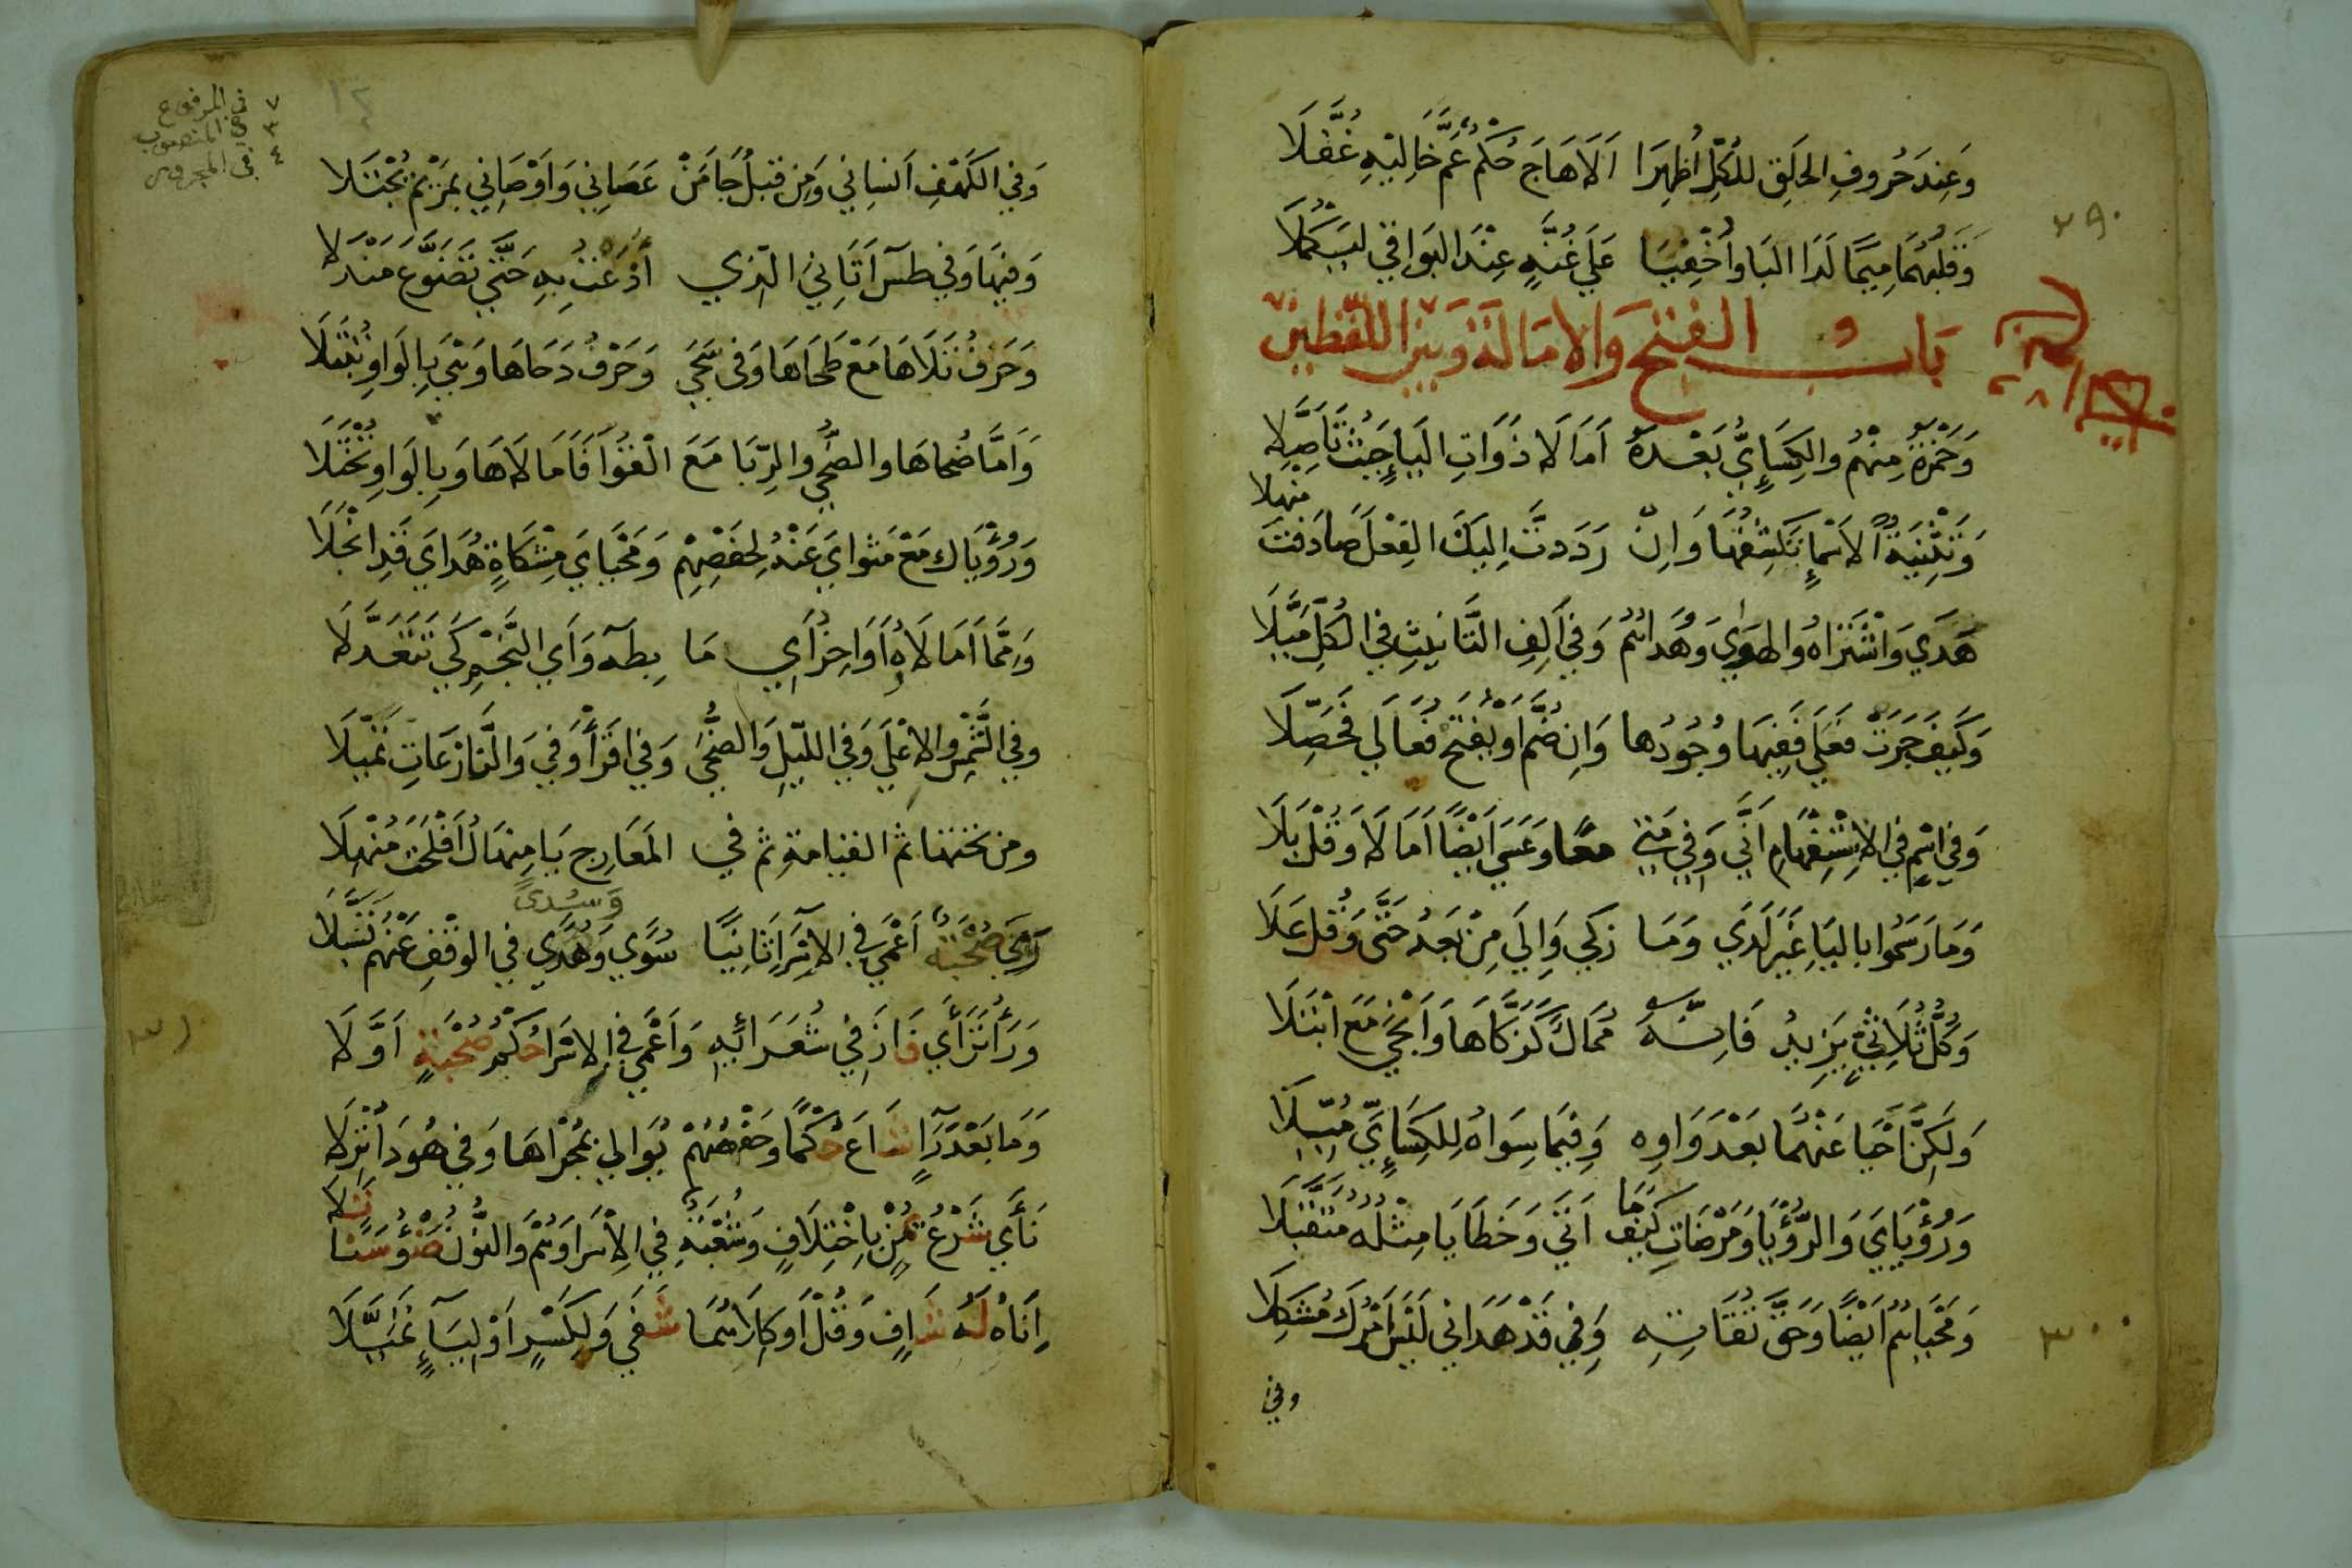 وَعِندَ حُرُوفِ الحَلِقِ لِلكُلِّ اُظْهِرَا اَلَا هَاجَ حُكْمٌ عَمَّ خَالِيْهِ غُفَّلَا
وَقَلْبُهُمَا مِيمًا لَدَا البَا وَاُخْفِيَا عَلَى غُنَّةٍ عِنْدَ البَوَاقِي لِيَكْمُلَا
٢٩٠
بَابُ الفتح وَالامَالَة وَبَيْنَ اللَّفْظَيْن
وَحَمْزَةُ مِنْهُمْ وَالكِسَائِيُّ بَعْدَهُ اَمَالَا ذَوَاتِ اليَاءِ حَيْثُ تَاَصَّلا
وَتَثْنِيَةُ الاَسْمَاءِ تَكْشِفُهَا وَاِنْ رَدَدتَّ اِلَيكَ الفِعْلَ صَادَفتَ مَنْهلا
هَدَي وَاشْتَرَاهُ وَالهَوَي وَهُدَاهُمُ وَفِي اَلِفِ التَّانِيثِ فِي الكُلِّ مَيَّلَا
وَكَيفَ جَرَتْ فَعْلَى فَفِيهَا وُجُودُهَا وَاِن ضُمَّ اَوْ يُفْتَحْ فُعَالَى فَحَصِّلَا
وَفِي اسْمٍ فِي الاسْتِفْهَامِ اَنَّى وَفِي مَتى معًا وَعَسَى اَيْضًا اَمَالَا وَقُلْ بَلَا
وَمَا رَسَمُوا بِاليَاءِ غَيْرَ لَدَي وَمَا زَكَى وَاِلَى مِنْ بَعْدُ حَتَّى وَقُلْ عَلَا
وَكُلُّ ثُلَاثِيٍّ يَزِيدُ فَاِنَّهُ مُمَالٌ كَزَكَّاهَا وَاَنْجَى مَعَ ابْتَلَا
وَلَكِنَّ اَحْيَا عَنْهُمَا بَعْدَ وَاوِهِ وَفِيمَا سِوَاهُ لِلكِسَائِيِّ مُيِّلَا
وَرُؤْيَايَ وَالرُّؤْيَا وَمَرْضَاتِ كَيْفَمَا اَتَى وَخَطَايَا مِثْلُهُ مُتَقَبَّلَا
وَمَحْيَاهُمُ اَيْضًا وَحَقَّ تُقَاتِهِ وَفِي قَدْ هَدَانِي لَيْسَ اَمْرُكَ مُشْكِلَا
٣٠٠
وفي
٧ في المرفوع
٣ في المنصوب
٤ في المجرور
وَفِي الكَهْفِ اَنْسَانِي وَمِن قَبْلُ جَا مَنْ عَصَانِي وَاَوْصَانِي بِمَرْيَمَ يُجْتَلَا
وَفِيهَا وَفِي طسَ اَتَانِيَ الّذِي اَذَعْتُ بِهِ حَتَّى تَضَوَّعَ مَنْدَلَا
وَحَرْفُ تَلَاهَا مَعْ طَحَاهَا وَفِي سَجَى وَحَرْفُ دَحَاهَا وَهْيَ بِالوَاوِ تُبْتَلَا
وَاَمَّا ضُحَاهَا وَالضُّحَى وَالرِّبَا مَعَ القُوَا فَاَمَالَاهَا وَبِالوَاوِ تُخْتَلَا
وَرُؤْيَاكَ مَعْ مَثْوَايَ عَنْهُ لِحَفْصِهِمْ وَمَحْيَايَ مِشْكَاةٍ هُدَايَ قَدِ انْجَلَا
وَمِمَّا اَمَالَاهُ اَوَاخِرُ اَيِ مَا بِطَه وَاَي النَّجْمِ كَي تَتَعَدَّلَا
وَفِي الشَّمْسِ وَالاَعْلَى وَفِي اللَّيلِ وَالضُّحَى وَفِي اقْرَأْ وَفِي وَالنَّازِعَاتِ تَمَيَّلَا
وَمِن تَحْتِهَا ثُمَّ القِيَامَةِ ثُمَّ فِي المَعَارِجِ يَا مِنْهَالُ اَفْلَحْتَ مُنْهِلَا
رَمَى صُحْبَةٌ اَعْمَى فِي الاِسْرَا ثَانِيًا سُوًى وَهُدًى فِي الوَقْفِ عَنْهُمْ تَسَبَّلَا
وَسُدىً
وَرَاءُ تَرَاءَي فَازَ فِي شُعَرَائِهِ وَاَعْمَى فِي الاِسْرَا حُكْمُ صُحْبَةٍ اَوَّلَا
وَمَا بَعْدَ رَاءٍ شَاعَ حُكْمًا وَحَفْصُهُمْ يُوَالِي بِمَجْرَاهَا وَفِي هُودَ اُنْزِلَا
نَأَي شَرْعُ يُمْنٍ بِاخْتِلَافٍ وَشُعْبَةٌ فِي الاِسْرَا وَهُمْ وَالنُّونُ ضَوْءُ سَنًا تَلَا
اِنَاهُ لَهُ شَافٍ وَقُلْ اَوْ كِلَاهُمَا شَفَى وَلِكَسْرٍ اَوْ لِيَاءٍ تَمَيَّلَا